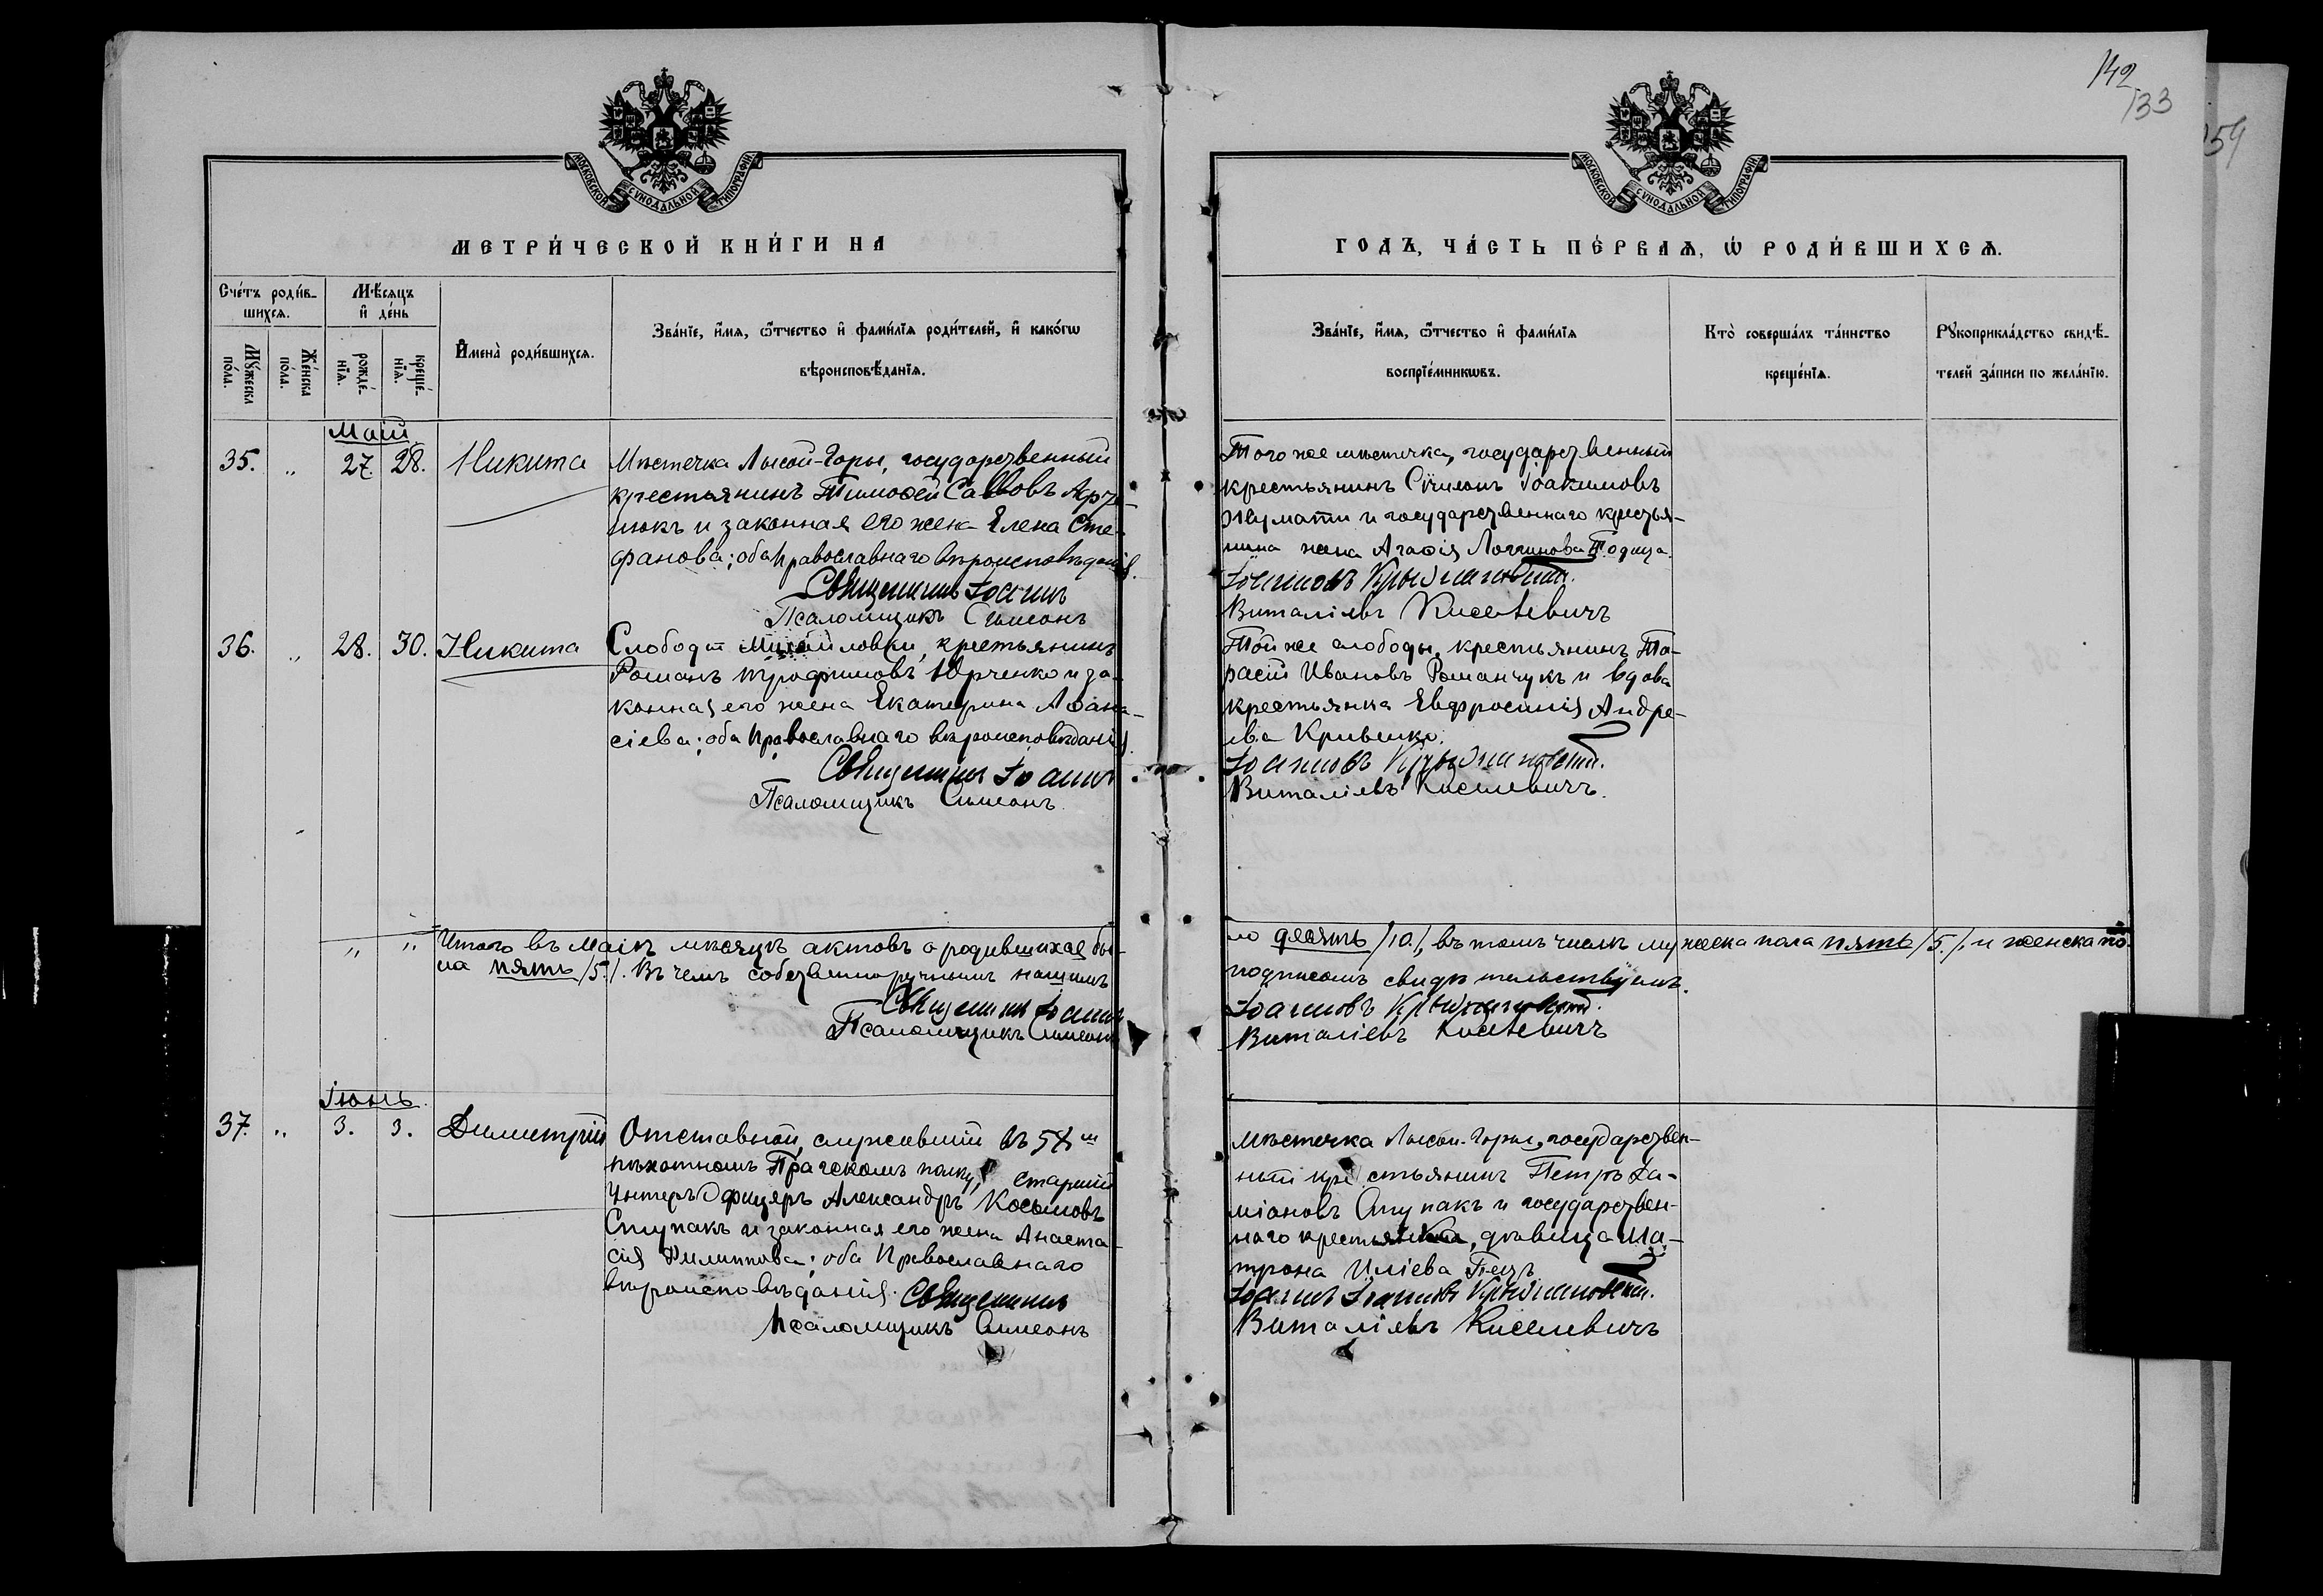 142
133
159
МОСКОВСКОЙ СУНОДАЛЬНОЙ ТИПОГРАФІИ
МОСКОВСКОЙ СУНОДАЛЬНОЙ ТИПОГРАФІИ
МЕТРИ́ЧЕСКОЙ КНИ́ГИ НА
Сче́тъ роди́в-
шихсѧ.
Мѣ́сяцъ
и҆ де́нь
Мꙋ́жеска
по́ла.
Же́нска
по́ла.
рожде́-
нїѧ.
креще́-
нїѧ.
И҆мена̀ роди́вшихсѧ.
Зва́нїе, и҆́мѧ, ѻ҆́тчество и҆ фами́лїѧ роди́телей, и҆ како́гѡ
вѣроисповѣ́данїѧ.
Май
35. „ 27. 28. Никита
Мѣстечка Лысой-Горы, государственный
крестьянинъ Тимоѳей Савовъ
и законная его жена Елена Сте-
фанова; оба Православнаго вѣроисповѣданія.
Священникъ Іоаннъ
Псаломщикъ Симеонъ
36. „ 28. 30. Никита
Слободы Михайловки, крестьянинъ
Романъ Трофимовъ Юрченко и за-
конная его жена Екатерина Аѳана-
сіева; оба Православнаго вѣроисповѣданія.
Священникъ Іоаннъ
Псаломщикъ Симеонъ
„ „ Итого въ Маѣ мѣсяцѣ актовъ о родившихся бы-
ла пять /5./. Въ чемъ собственноручнымъ нашимъ
Священникъ Іоаннъ
Псаломщикъ Симеонъ
Іюнь.
37. „ 3. 3. Димитрій
Отставной, служавшій въ 58мъ
пѣхотномъ Прагскомъ полку, старшій
Унтеръ Офицеръ Александръ Косьмовъ
Ступакъ и законная его жена Анаста-
сія Филиппова; оба Православнаго
вѣроисповѣданія. Священникъ
Псаломщикъ Симеонъ
ГОДЪ, ЧА́СТЬ ПЕ́РВАѦ, Ѡ҆ РОДИ́ВШИХСѦ.
Зва́нїе, и҆́мѧ, ѻ҆́тчество и҆ фами́лїѧ
воспрїе́мникѡвъ.
Кто̀ соверша́лъ та́инство
креще́нїѧ.
Рꙋкоприкла́дство свидѣ́-
телей за́писи по жела́нїю.
Того же мѣстечка, государственный
крестьянинъ Сѵмеонъ Іоакимовъ
и государственнаго крестья-
нина жена Агаѳія Логгинова
Іоанновъ Крыжановскій.
Виталіевъ Киселевичъ
Той же слободы, крестьянинъ Та-
расій Ивановъ Романчукъ и вдова
крестьянка Евфросинія Андре-
ева Кривенко.
Іоанновъ Крыжановскій.
Виталіевъ Киселевичъ.
ло десять /10./, въ томъ числѣ мужеска пола пять /5./, и женска по-
подписомъ свидѣтельствуемъ.
Іоанновъ Крыжановскій.
Виталіевъ Киселевичъ
Мѣстечка Лысой-Горы, государствен-
ный крестьянинъ Петръ Да-
міановъ Ступакъ и государствен-
наго крестьянка, дѣвица Ма-
трона Иліева Пецъ
Іоаннъ Іоанновъ Крыжановскій.
Виталіевъ Киселевичъ